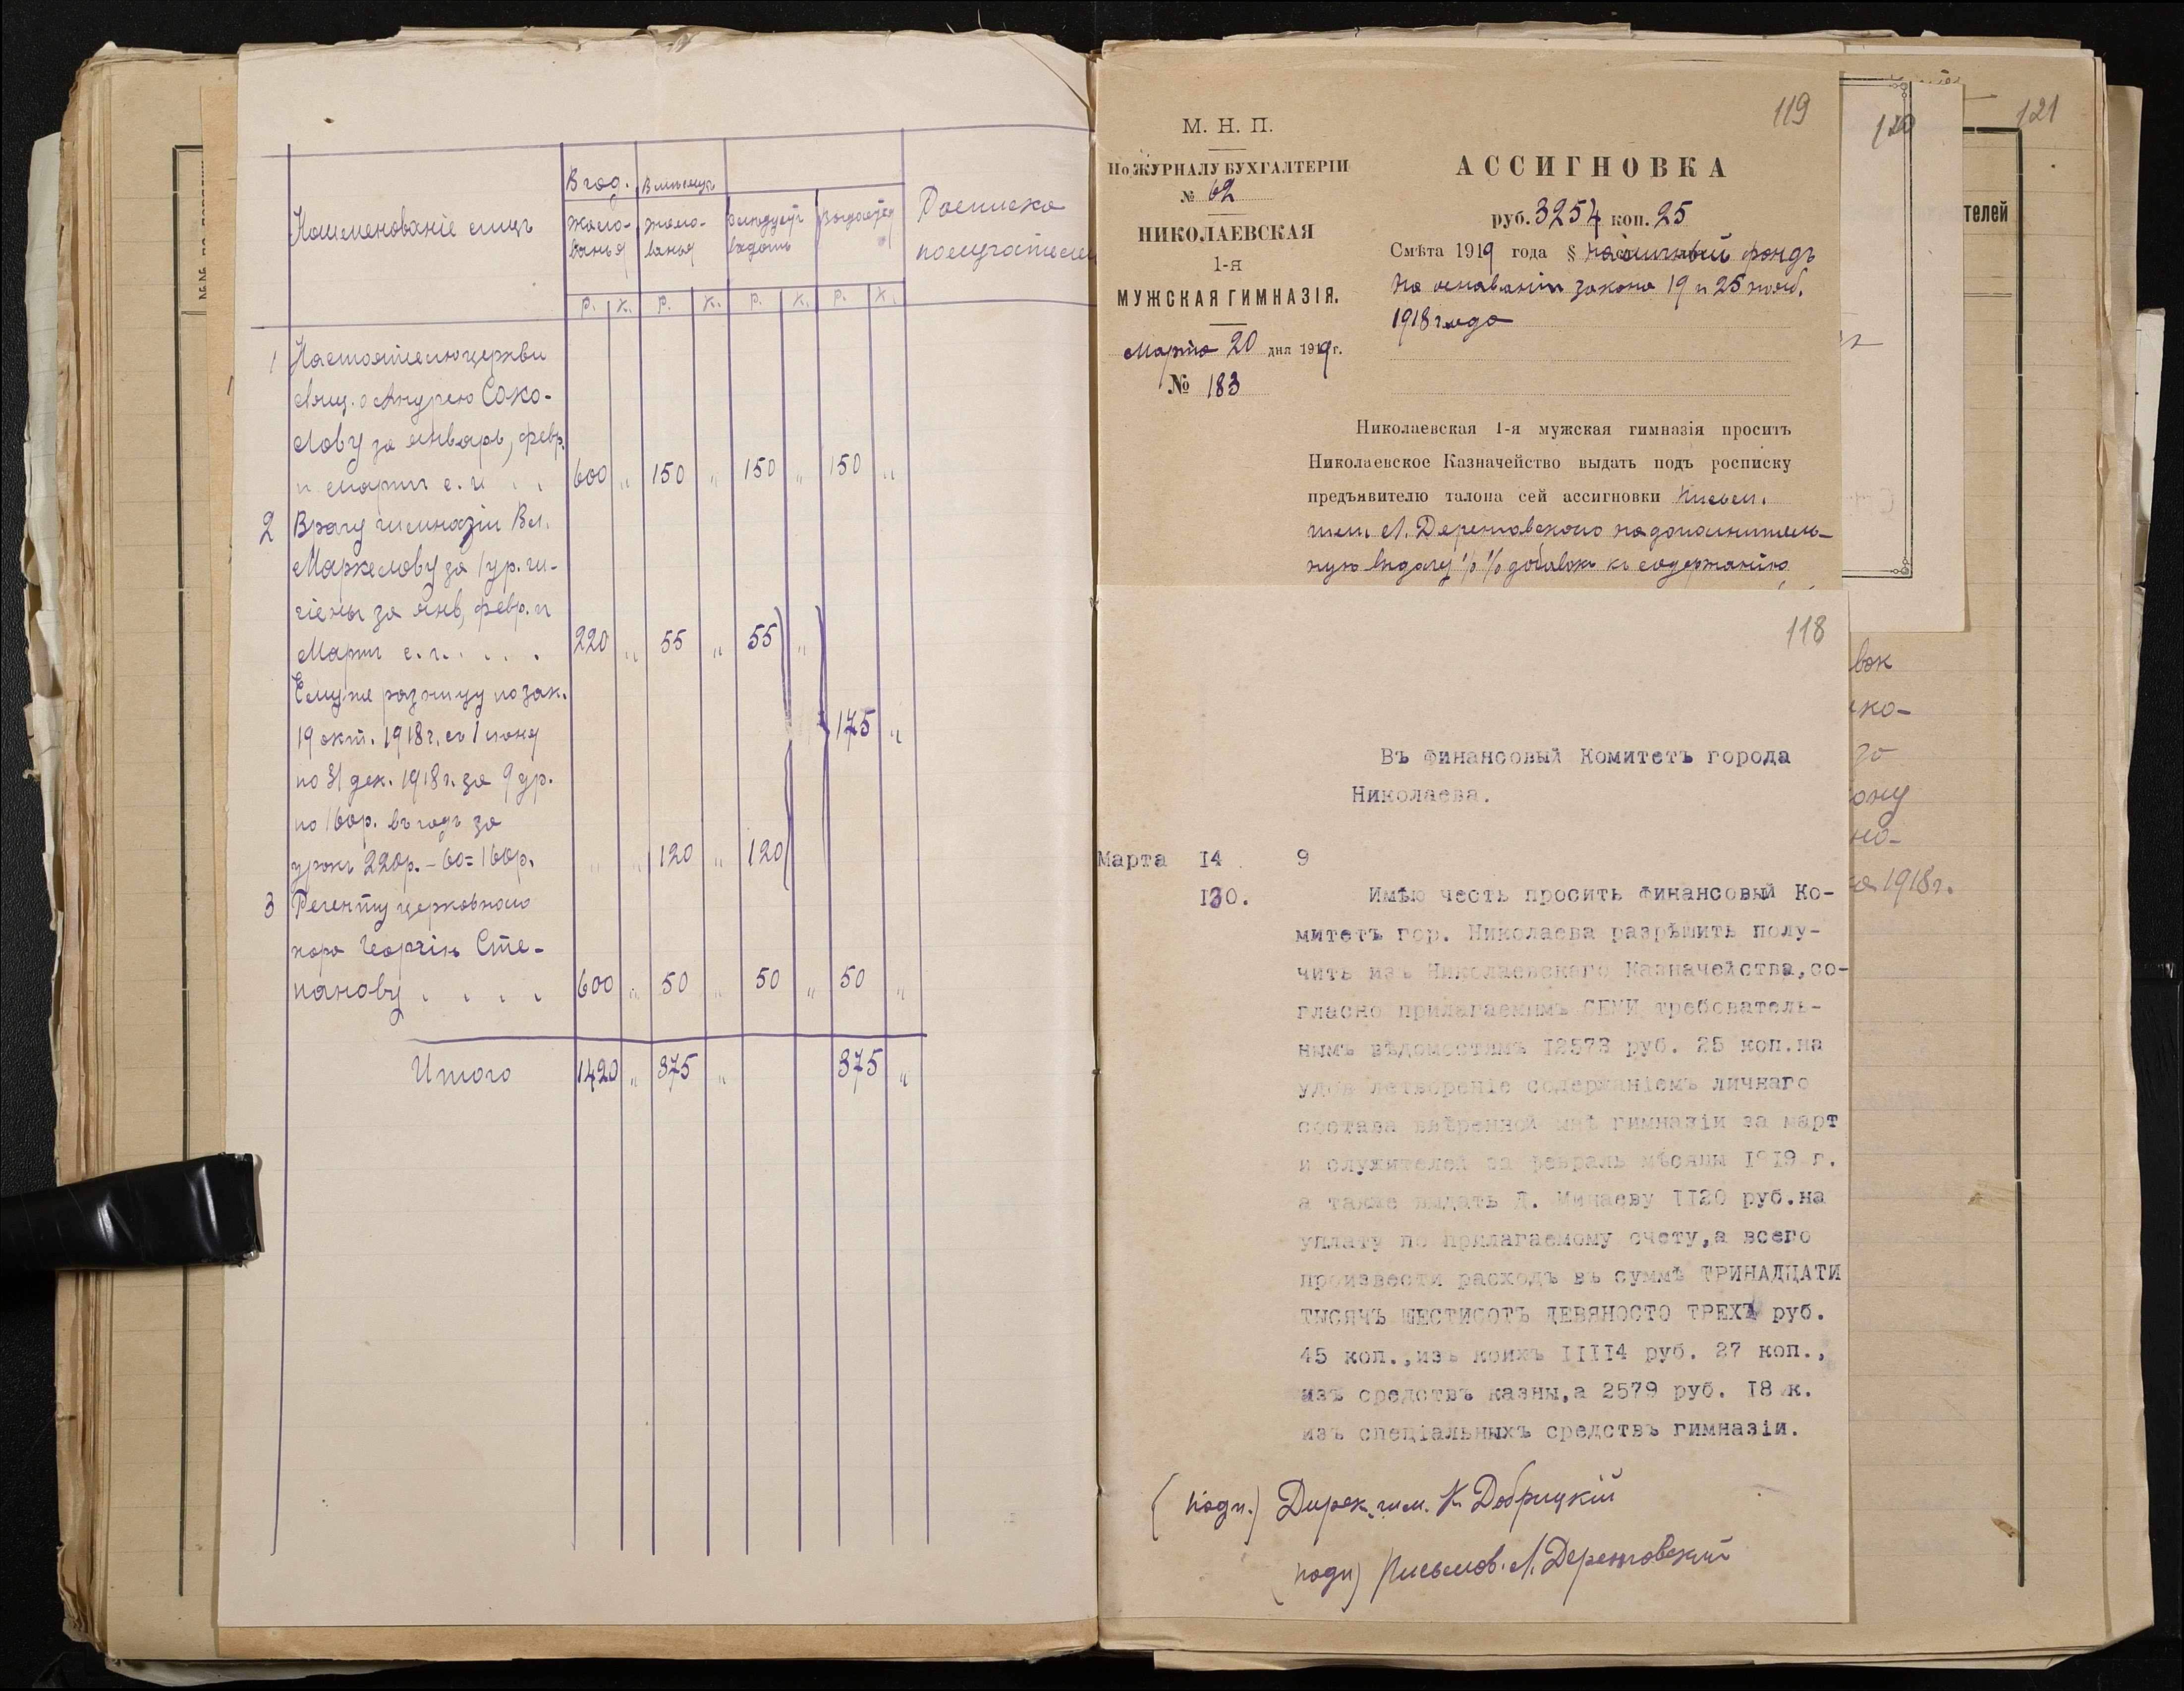 Наименованіе лицъ
В год.
В мѣсяцъ
жало-
ванья
жало-
ванья
Слѣдуетъ
выдать
Выдается
Росписка
получателей
р. к. р. к. р. к. р. к.
1 Настоятелю церкви
свящ. о Андрею Соко-
лову за январь, февр.
и мартъ с. г. . . 600 „ 150 „ 150 „ 150 „
2 Врачу гимназіи Вл.
Маркелову за 1 ур. ги-
гіены за янв, февр. и
Мартъ с. г. . . . 220 „ 55 „ 55 „
Ему же разницу по зак.
19 окт. 1918 г. съ 1 іюня 175 „
по 31 дек. 1918 г. за 9 ур.
по 160р. въ годъ за
урокъ 220р. – 60 = 160р. „ „ 120 „ 120
3 Регенту церковнаго
хора Георгію Сте-
панову . . . . 600 „ 50 „ 50 „ 50 „
Итого 1420 „ 375 „ 375 „
119
М. Н. П.
По ЖУРНАЛУ БУХГАЛТЕРІИ
№ 62
НИКОЛАЕВСКАЯ
1-я
МУЖСКАЯ ГИМНАЗІЯ.
Марта 20 дня 1919 г.
№ 183
АССИГНОВКА
руб. 3254 коп. 25
Смѣта 1919 года § наличный фондъ
На основаніи закона 19 и 25 нояб.
1918 года
Николаевская 1-я мужская гимназія проситъ
Николаевское Казначейство выдать подъ росписку
предъявителю талона сей ассигновки письм.
гим. Л. Держановскаго на дополнитель-
ную выдачу %% добавокъ къ содержанію
118
Въ Финансовый Комитетъ города
Николаева.
Марта 14 9
130.
Имѣю честь просить Финансовый Ко-
митетъ гор. Николаева разрѣшить полу-
чить изъ Николаевскаго Казначейства,со-
гласно прилагаемымъ СЕМИ требователь-
нымъ вѣдомостямъ I2573 руб. 25 коп.на
удовлетвореніе содержаніемъ личнаго
состава ввѣренной мнѣ гимназіи за март
и служителей за февраль мѣсяцы I9I9 г.
а также выдать Д. Минаеву II20 руб.на
уплату по прилагаемому счету,а всего
произвести расходъ въ суммѣ ТРИНАДЦАТИ
ТЫСЯЧЪ ШЕСТИСОТЪ ДЕВЯНОСТО ТРЕХЪ руб.
45 коп.,изъ коихъ IIII4 руб. 27 коп.,
изъ средствъ казны,а 2579 руб. I8 к.
изъ спеціальныхъ средствъ гимназіи.
(подп.) Дирек. гим. К. Добрицкій
(подп) Письмов. Л. Держановскій
120
121
телей
вок
ко-
за
ону
но-
1918 г.